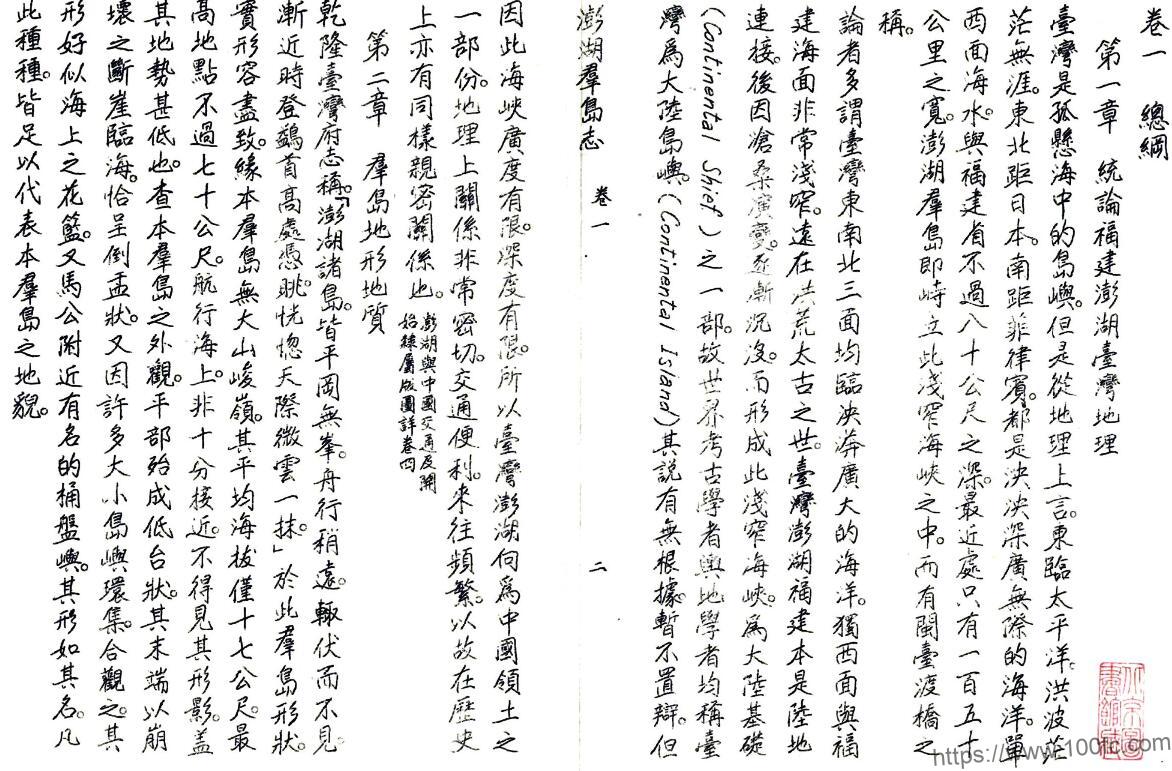 卷一　總綱
第一章　統論福建澎湖臺灣地理
臺灣是孤懸海中的島嶼。但是從地理上言。東臨太平洋。洪波茫
茫無涯。東北距日本。南距菲律賓。都是泱泱深廣無際的海洋。單
西面海水。與福建省不過八十公尺之深。最近處只有一百五十
公里之寬。澎湖群島即峙立此淺窄海峽之中。而有閩臺渡橋之
稱。
論者多謂臺灣東南北三面均臨泱漭廣大的海洋。獨西面與福
建海面非常淺窄。遠在洪荒太古之世。臺灣澎湖福建本是陸地
連接。後因滄桑演變。逐漸沉沒。而形成此淺窄海峽。為大陸基礎
(Continental Shief)之一部。故世界考古學者與地學者均稱臺
灣為大陸島嶼。(Continental Island)其說有無根據。暫不置辯。但
澎湖羣島志　卷一　二
因此海峽廣度有限。深度有限。所以臺灣澎湖向為中國領土之
一部份。地理上關係非常密切。交通便利。來往頻繁。以故在歷史
上亦有同樣親密關係也。澎湖與中國交通及開
始隸屬版圖詳卷四
第二章　羣島地形地質
乾隆臺灣府志稱。「澎湖諸島。皆平岡無峯。舟行稍遠。輒伏而不見。
漸近時登鷁首高處憑眺。恍惚天際微雲一抹。」於此羣島形狀。
實形容盡致。緣本羣島無大山峻嶺。其平均海拔僅十七公尺。最
高地點不過七十公尺。航行海上。非十分接近。不得見其形影。蓋
其地勢甚低也。查本羣島之外觀。平部殆成低台狀。其末端以崩
壞之斷崖臨海。恰呈倒盂狀。又因許多大小島嶼環集。合觀之。其
形好似海上之花籃。又馬公附近有名的桶盤嶼。其形如其名。凡
此種種。皆足以代表本羣島之地貌。
https://www.100fc.com